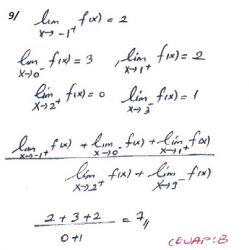 9/ lim x→-1⁺ f(x) = 2
lim x→0⁻ f(x) = 3 , lim x→1⁺ f(x) = 2
lim x→2⁺ f(x) = 0 lim x→3⁻ f(x) = 1
lim x→-1⁺ f(x) + lim x→0⁻ f(x) + lim x→1⁺ f(x)
lim x→2⁺ f(x) + lim x→3⁻ f(x)
2+3+2 / 0+1 = 7,,
CEVAP:B